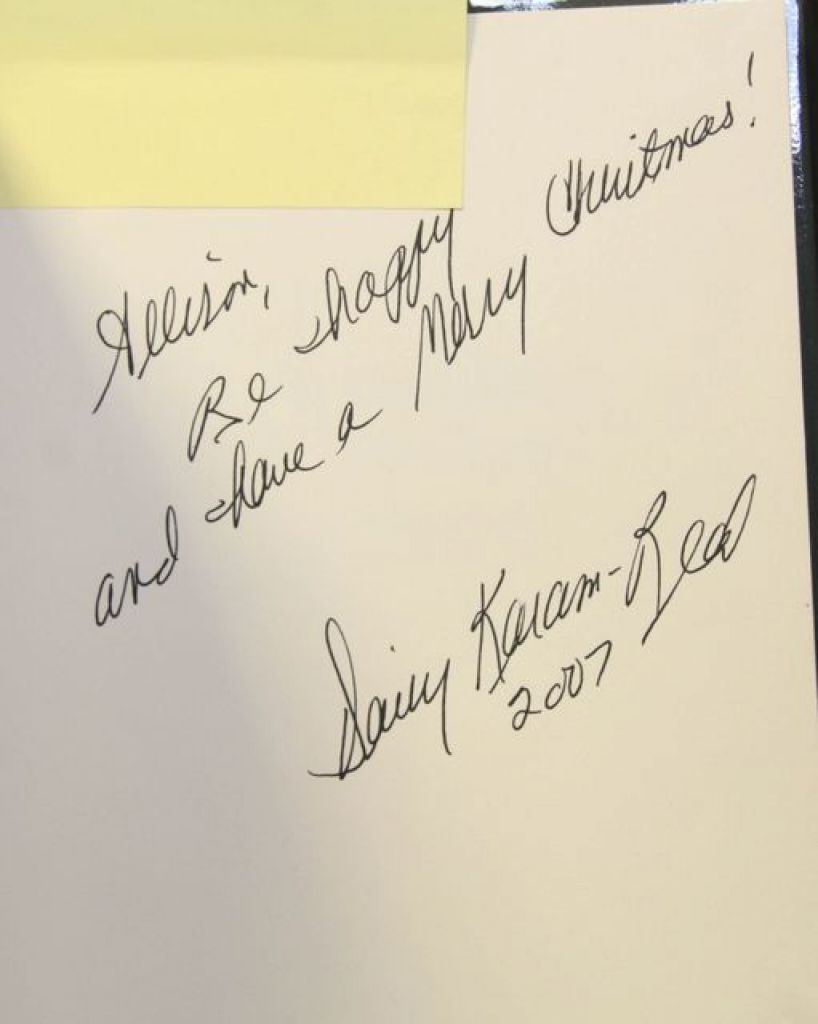 Allison,
Be happy
and have a Merry Christmas!
Daisy Karam-Read
2007